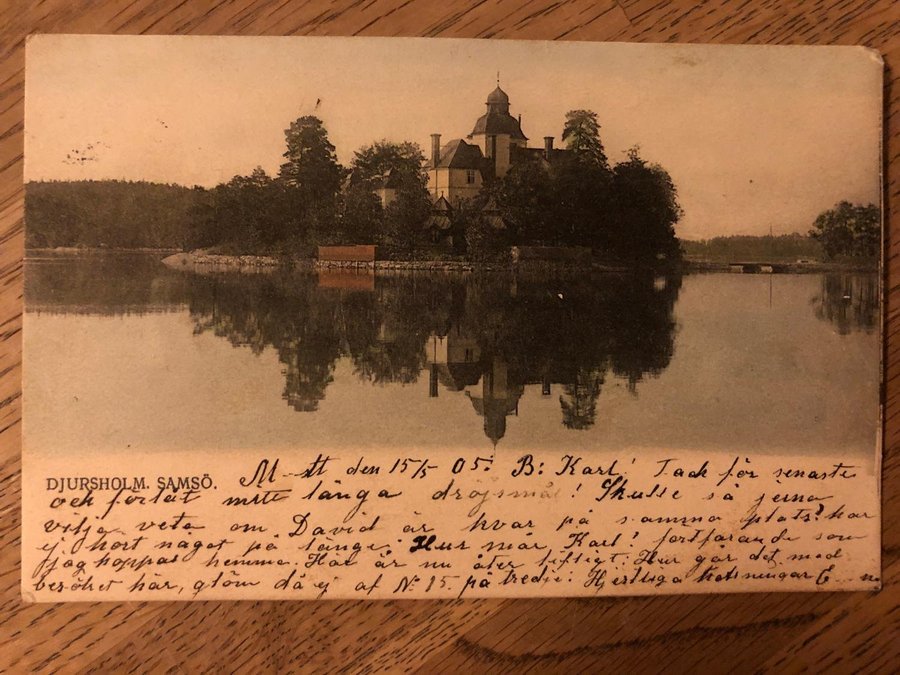 DJURSHOLM. SAMSÖ.
M-tt den 15/5 05. B: Karl! Tack för senaste
och förlåt mitt långa dröjsmål! Skulle så jerna
vilja veta om David är kvar på samma plats? har
ej hört något på länge. Hur mår Karl! fortfarande som
jag hoppas hemma. Här är nu åter liftligt. Hur går det med
besöket här, glöm då ej af No 15 på tredie. Hjertliga helsningar E